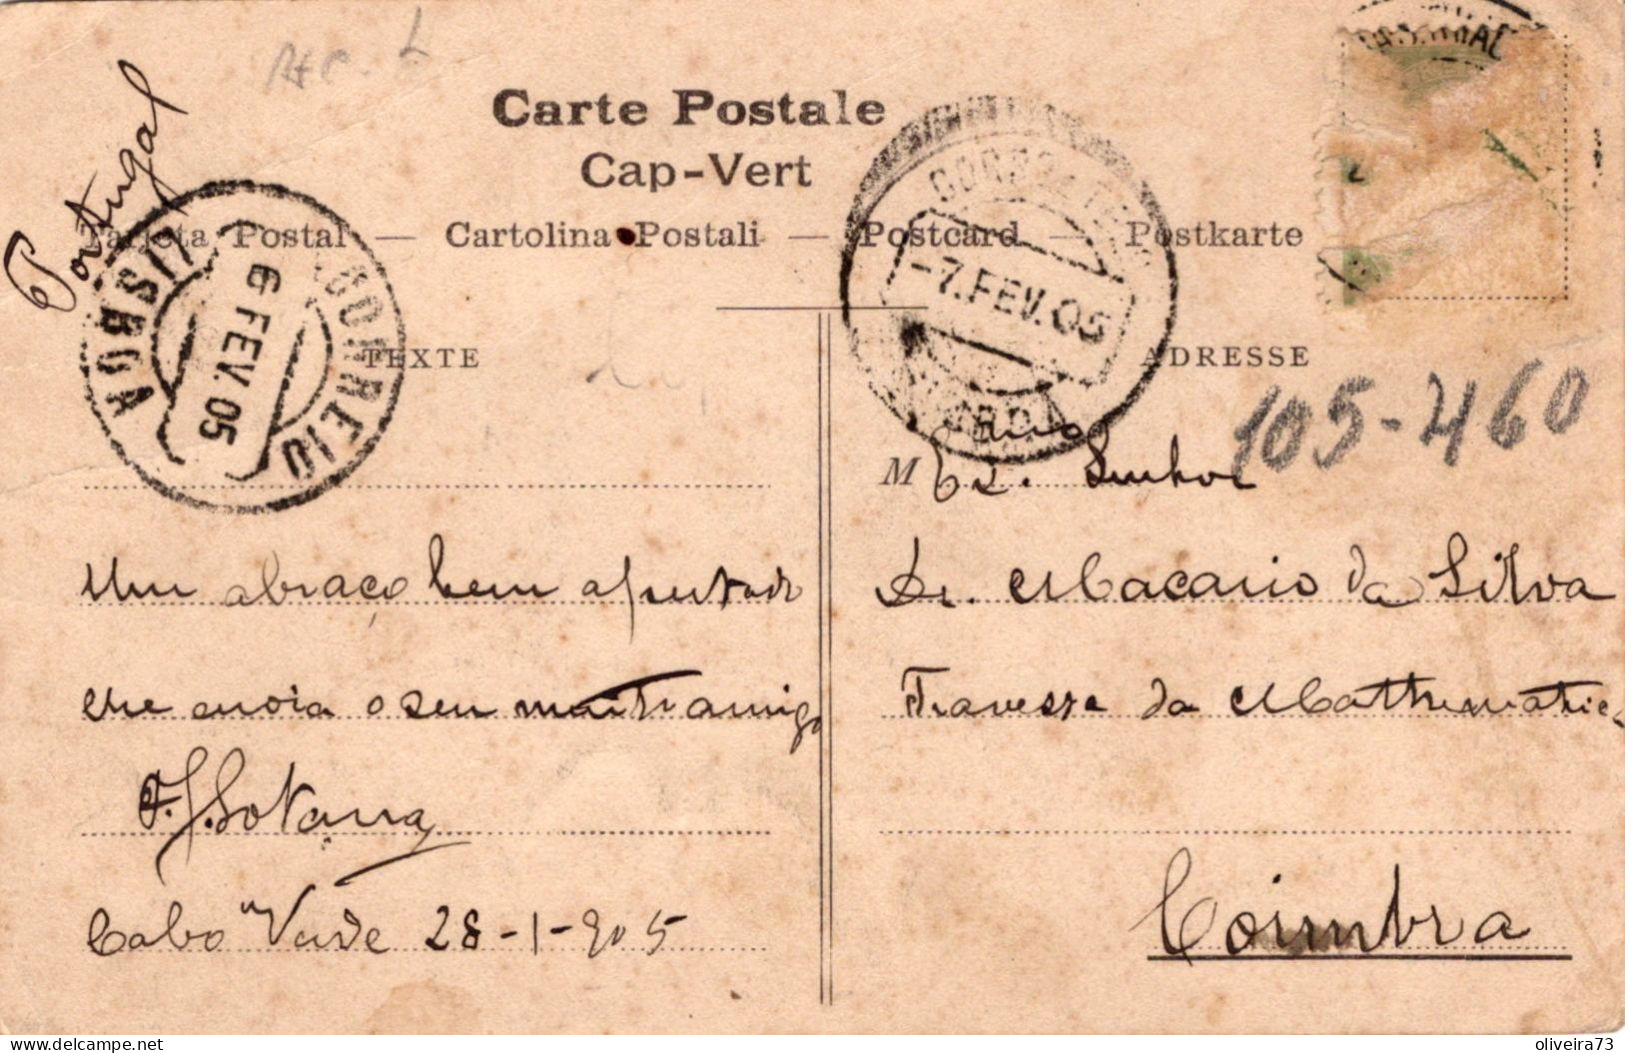 Portugal
Carte Postale
Cap-Vert
Tarjeta Postal — Cartolina Postali — Postcard — Postkarte
CORREIO
LISBOA
6 FEV. 05
-7. FEV. 05
TEXTE
ADRESSE
105-460
M Ex.mo Senhor
Dr. Macario da Silva
Travessa da Mathematica
Coimbra
Um abraço bem apertado
che envia o seu muito amigo
F. J. Sotana
Cabo Verde 28-1-905
delcampe.net
oliveira73